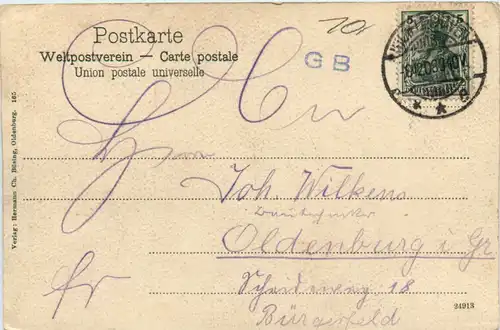 Postkarte
Weltpostverein — Carte postale
Union postale universelle
GB
5 5
An
Herrn
Joh. Wilkens
Oldenburg i. Gr
Scheideweg 18
Bürgerfeld
fr
Verlag: Hermann Ch. Büsing, Oldenburg. 165
24913